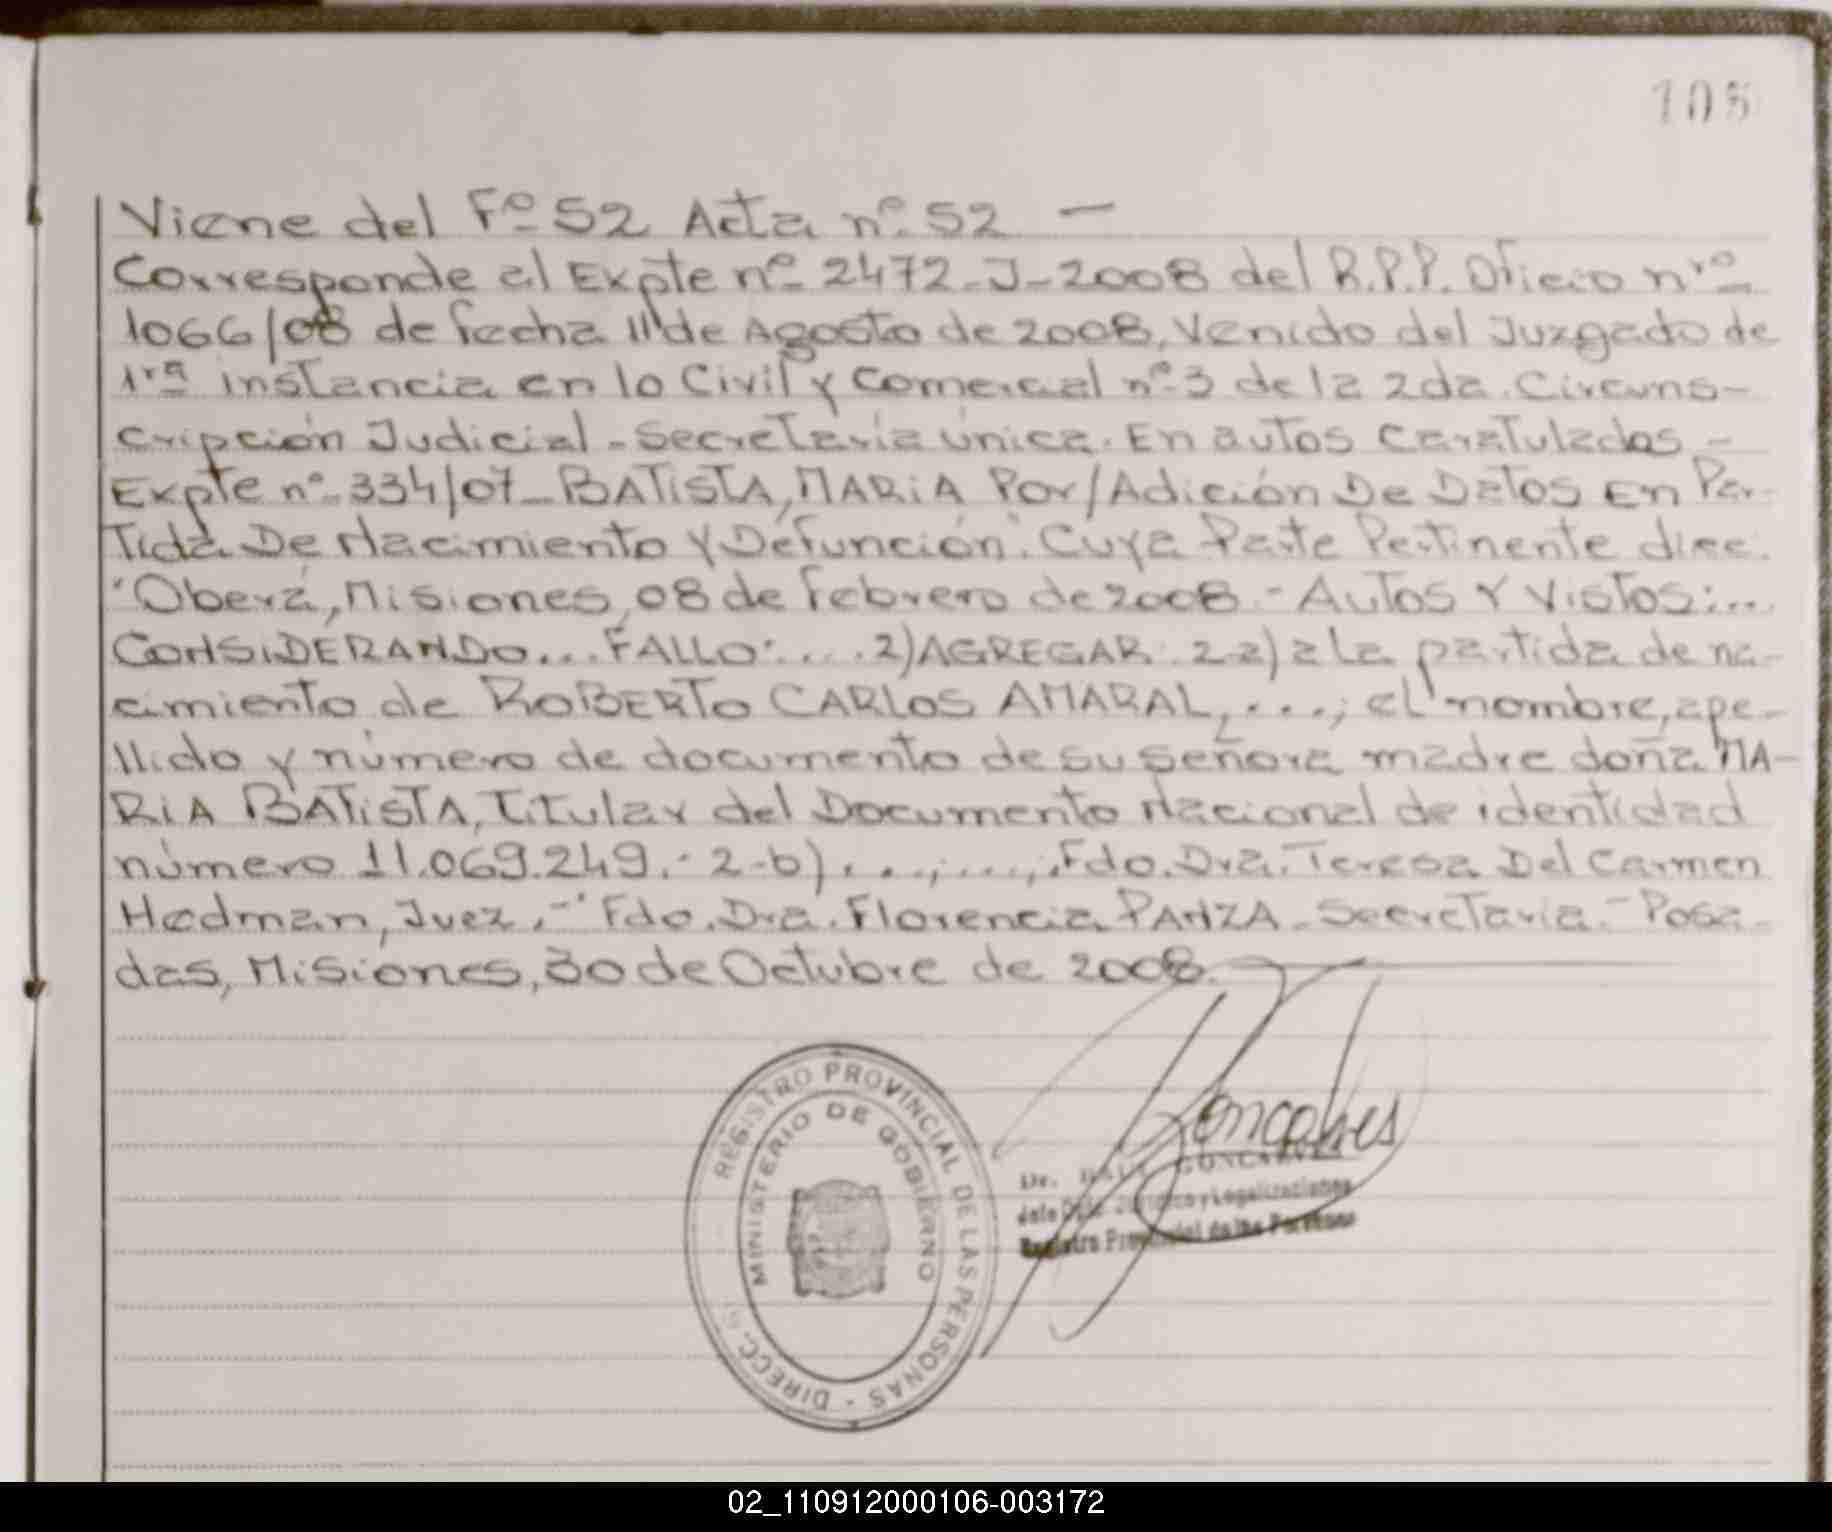 105
Viene del Fº 52 Acta nº 52 —
Corresponde al Expte nº 2472-J-2008 del R.P.P. Oficio nro
1066/08 de fecha 11 de Agosto de 2008, Venido del Juzgado de
1ra instancia en lo Civil y Comercial nº 3 de la 2da. Circuns-
cripción Judicial - Secretaría única. En autos Caratulados -
Expte nº 334/07 - BATISTA, MARIA Por/Adición De Datos En Par-
tida De Nacimiento Y Defunción". Cuya Parte Pertinente dice:
"Oberá, Misiones, 08 de Febrero de 2008.- Autos Y Vistos:...
CONSIDERANDO... FALLO:.... 2) AGREGAR: 2-a) a La partida de na-
cimiento de ROBERTO CARLOS AMARAL, ...; el nombre, ape-
llido y número de documento de su señora madre doña MA-
RIA BATISTA, Titular del Documento Nacional de identidad
número 11.069.249.- 2-b)...;...; Fdo. Dra. Teresa Del Carmen
Hedman, Juez.-" Fdo. Dra. Florencia PANZA - Secretaria.- Posa-
das, Misiones, 30 de Octubre de 2008.
REGISTRO PROVINCIAL DE LAS PERSONAS - DIRECC.
MINISTERIO DE GOBIERNO
Goncalves
Dr. RAUL GONCALVES
Jefe Dpto. Jurídico y Legalizaciones
Registro Provincial de las Personas
02_110912000106-003172